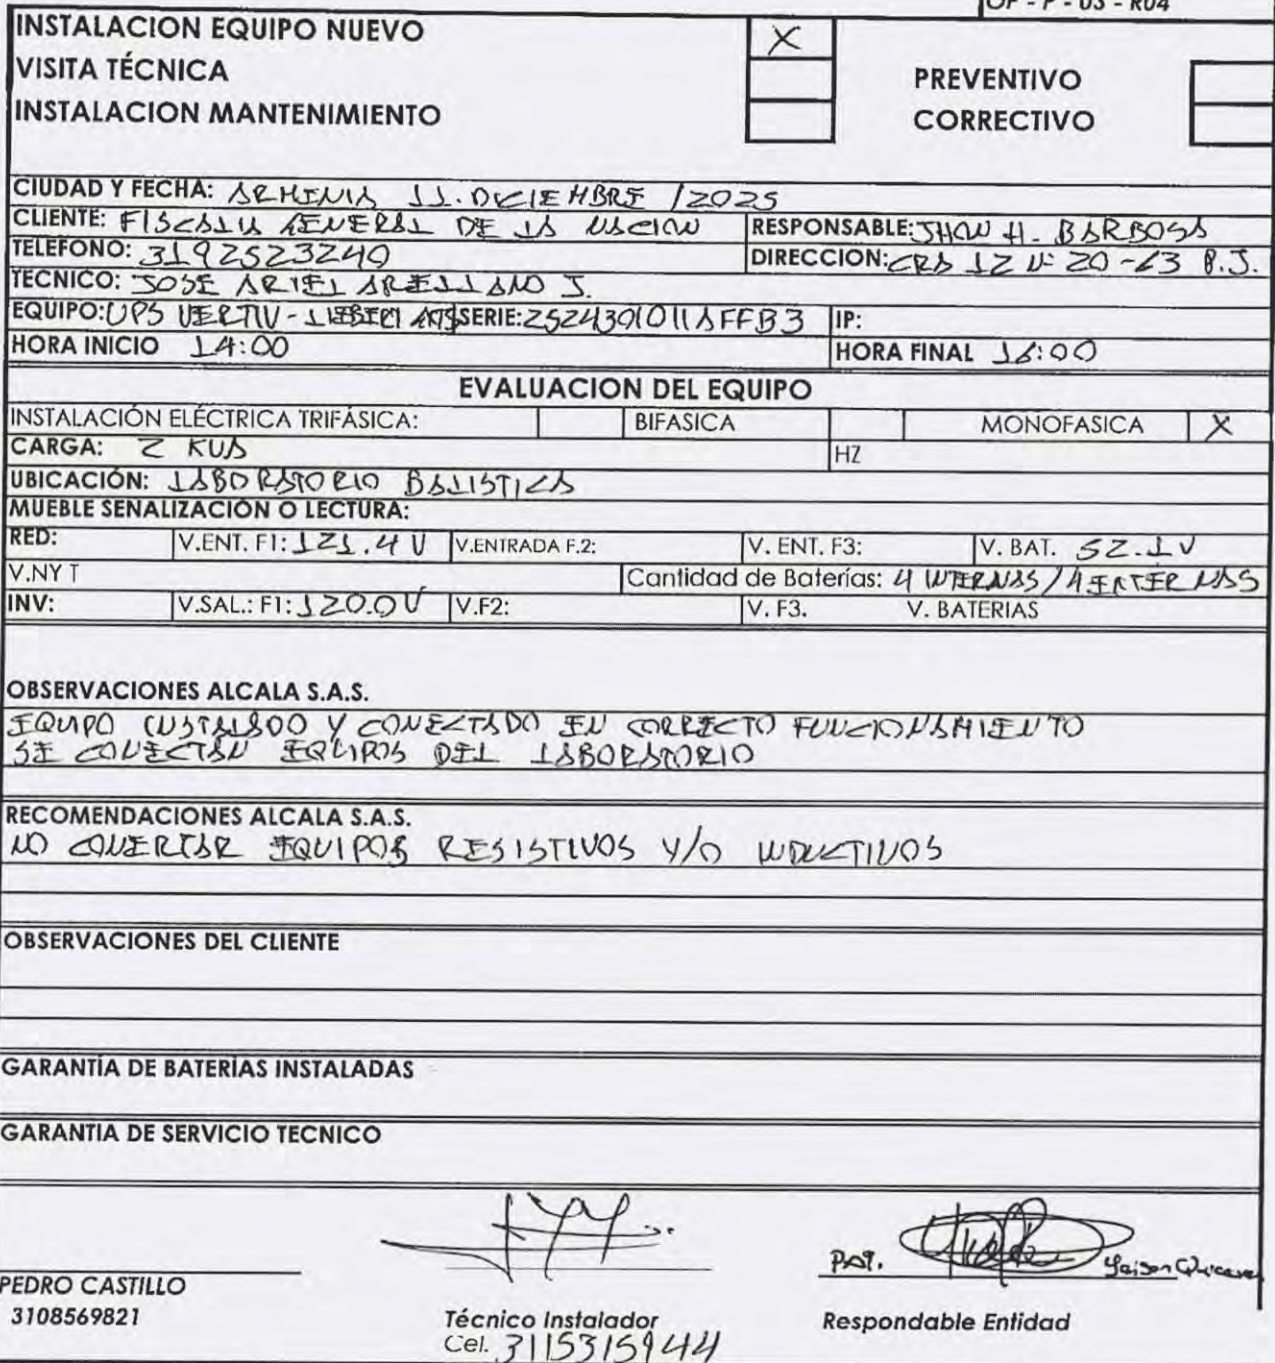 OP - P - 03 - R04
INSTALACION EQUIPO NUEVO X
VISITA TÉCNICA
PREVENTIVO
INSTALACION MANTENIMIENTO
CORRECTIVO
CIUDAD Y FECHA: ARMENIA 11. DICIEMBRE /2025
CLIENTE: FISCALIA GENERAL DE LA NACION RESPONSABLE: JHON H. BARBOSA
TELEFONO: 3192523240 DIRECCION: CRA 12 Nº 20-63 P.J.
TECNICO: JOSE ARIEL ARELLANO J.
EQUIPO: UPS VERTIV - LIEBERT SERIE: 2524301011AFFB3 IP:
HORA INICIO 14:00 HORA FINAL 16:00
EVALUACION DEL EQUIPO
INSTALACIÓN ELÉCTRICA TRIFÁSICA: BIFASICA MONOFASICA X
CARGA: 2 KVA HZ
UBICACIÓN: LABORATORIO BALISTICA
MUEBLE SENALIZACIÓN O LECTURA:
RED: V.ENT. F1: 121.4 V V.ENTRADA F.2: V. ENT. F3: V. BAT. 52.1 V
V.NY T Cantidad de Baterías: 4 INTERNAS / 4 EXTERNAS
INV: V.SAL.: F1: 120.0 V V.F2: V. F3. V. BATERIAS
OBSERVACIONES ALCALA S.A.S.
EQUIPO INSTALADO Y CONECTADO EN CORRECTO FUNCIONAMIENTO
SE CONECTAN EQUIPOS DEL LABORATORIO
RECOMENDACIONES ALCALA S.A.S.
NO CONECTAR EQUIPOS RESISTIVOS Y/O INDUCTIVOS
OBSERVACIONES DEL CLIENTE
GARANTÍA DE BATERÍAS INSTALADAS
GARANTIA DE SERVICIO TECNICO
PEDRO CASTILLO
3108569821
Técnico Instalador
Cel. 3115315944
Respondable Entidad